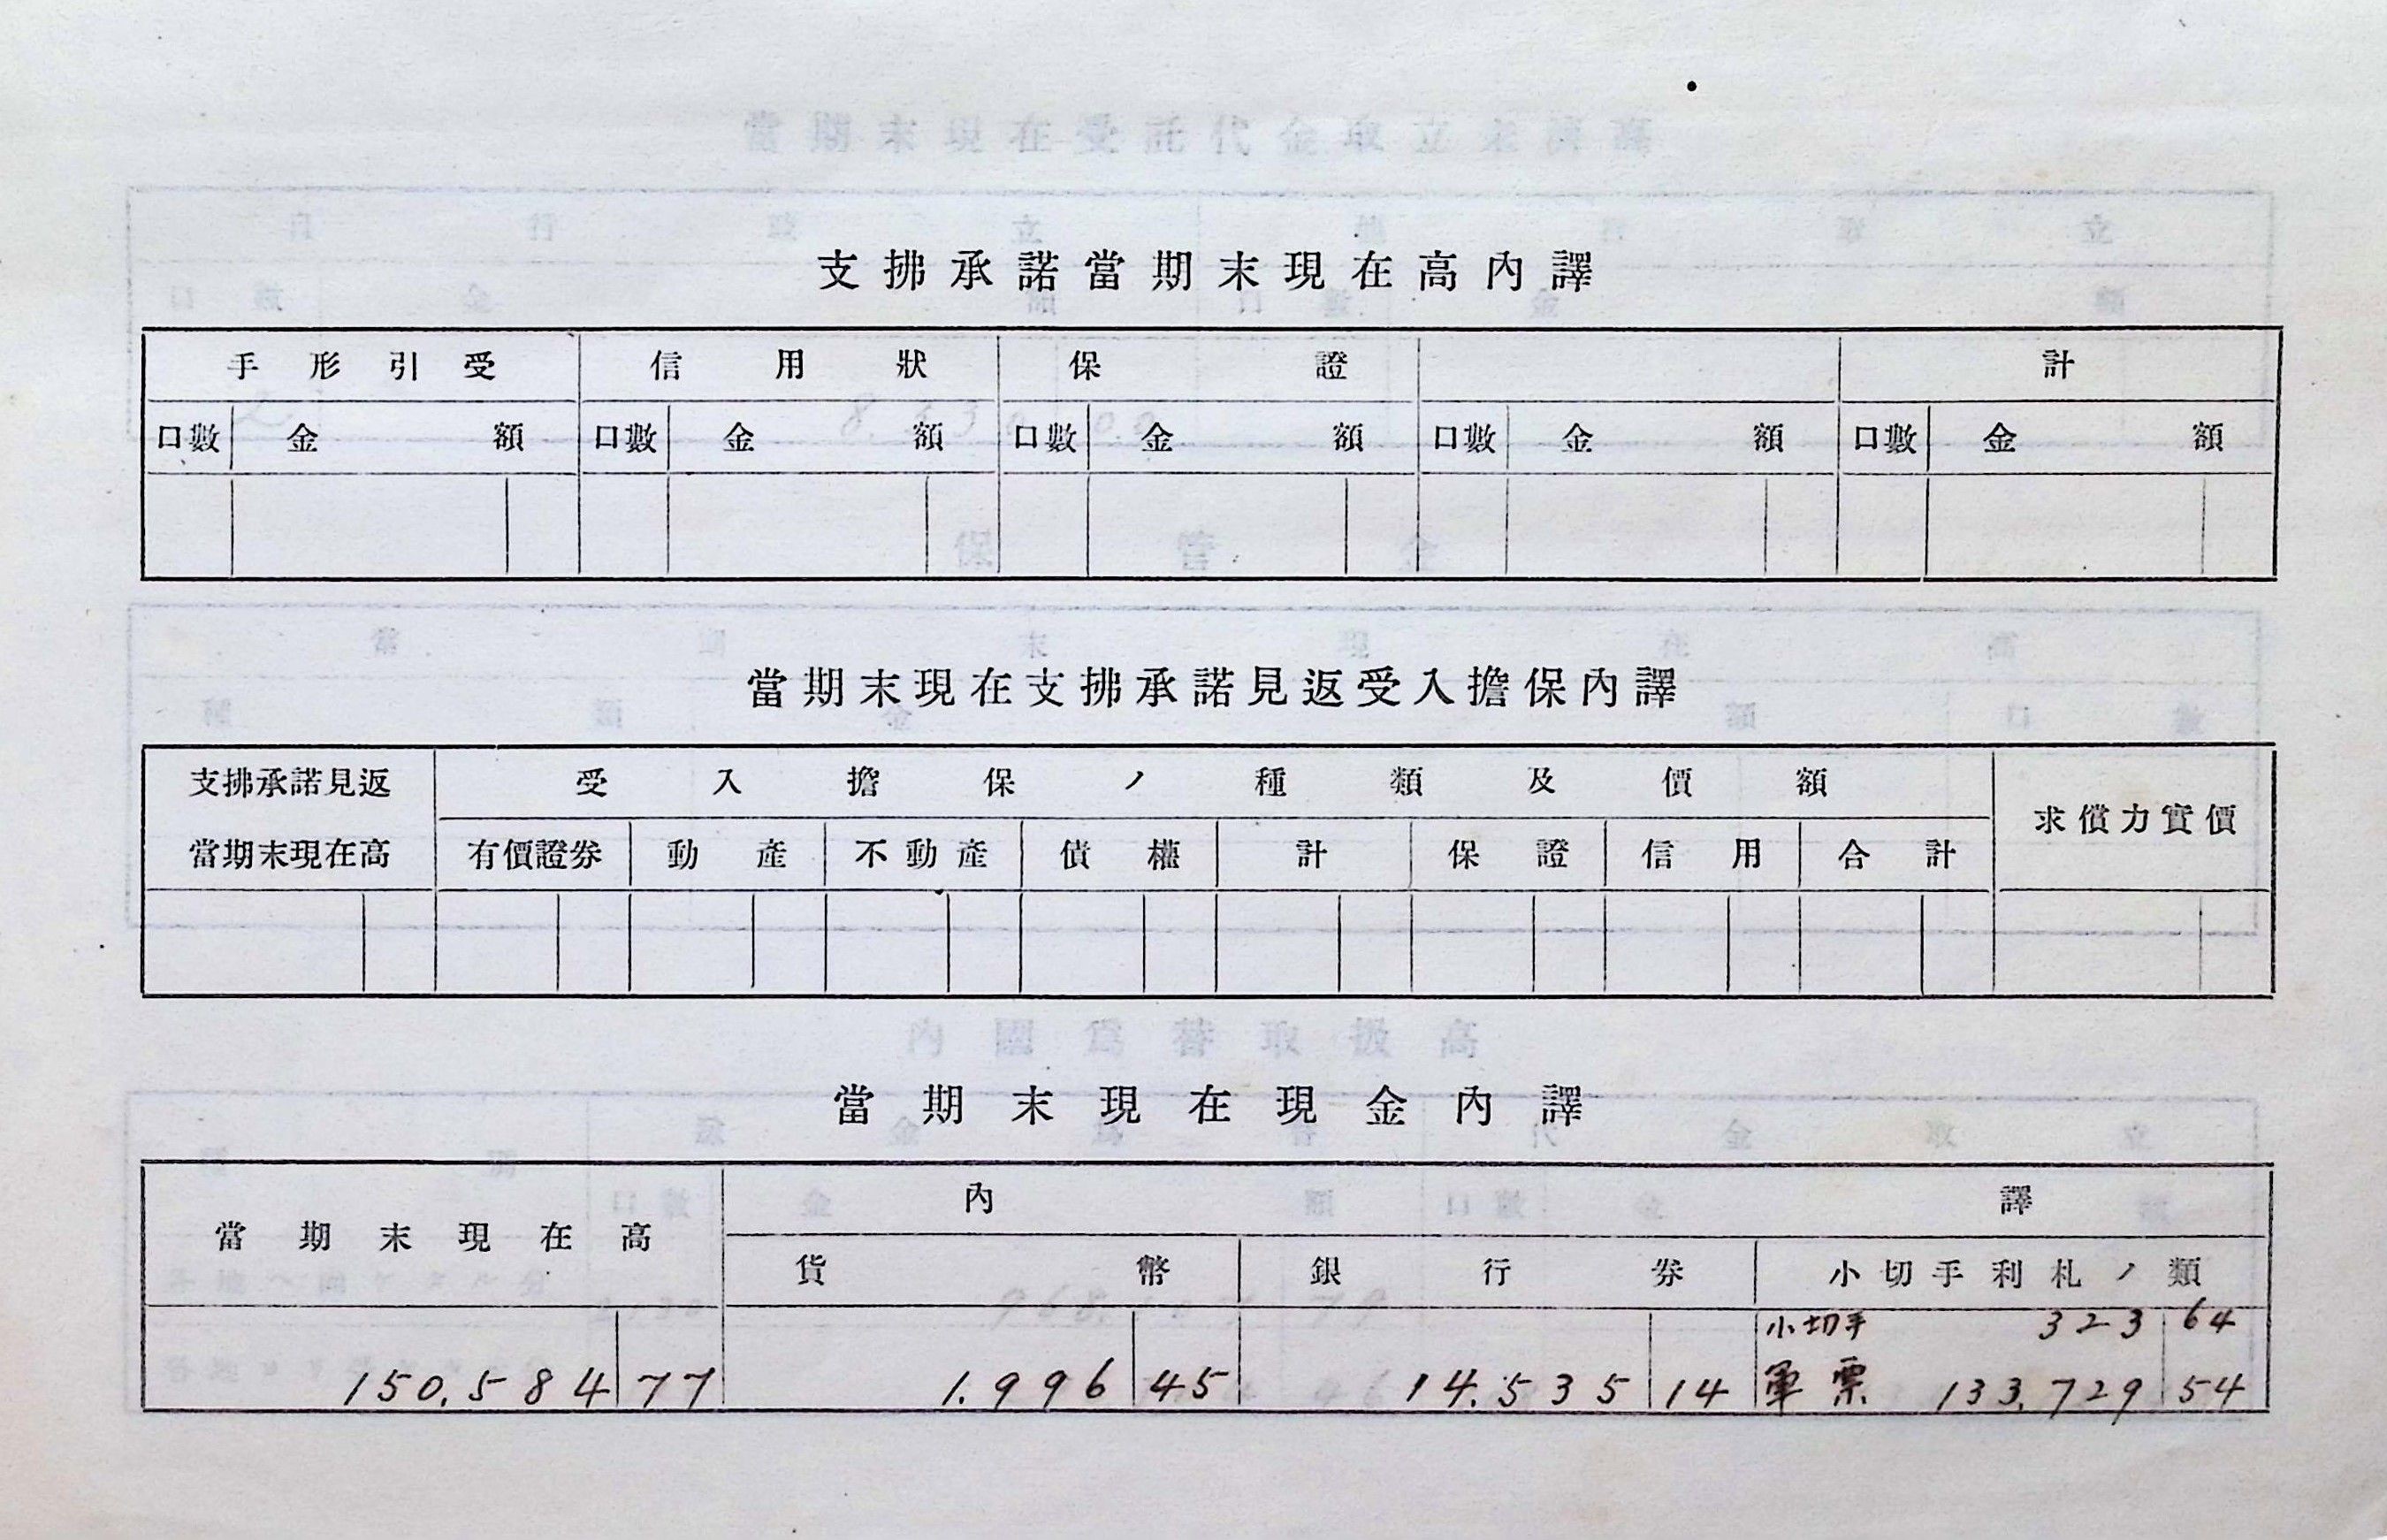 支拂承諾當期末現在高內譯
手形引受 信用狀 保證 計
口數 金額 口數 金額 口數 金額 口數 金額 口數 金額
當期末現在支拂承諾見返受入擔保內譯
支拂承諾見返 受入擔保ノ種類及價額
求償力實價
當期末現在高 有價證券 動產 不動產 債權 計 保證 信用 合計
當期末現在現金內譯
內譯
當期末現在高
貨幣 銀行券 小切手利札ノ類
小切手 323 64
150.584 77 1.996 45 14.535 14 軍票 133.729 54